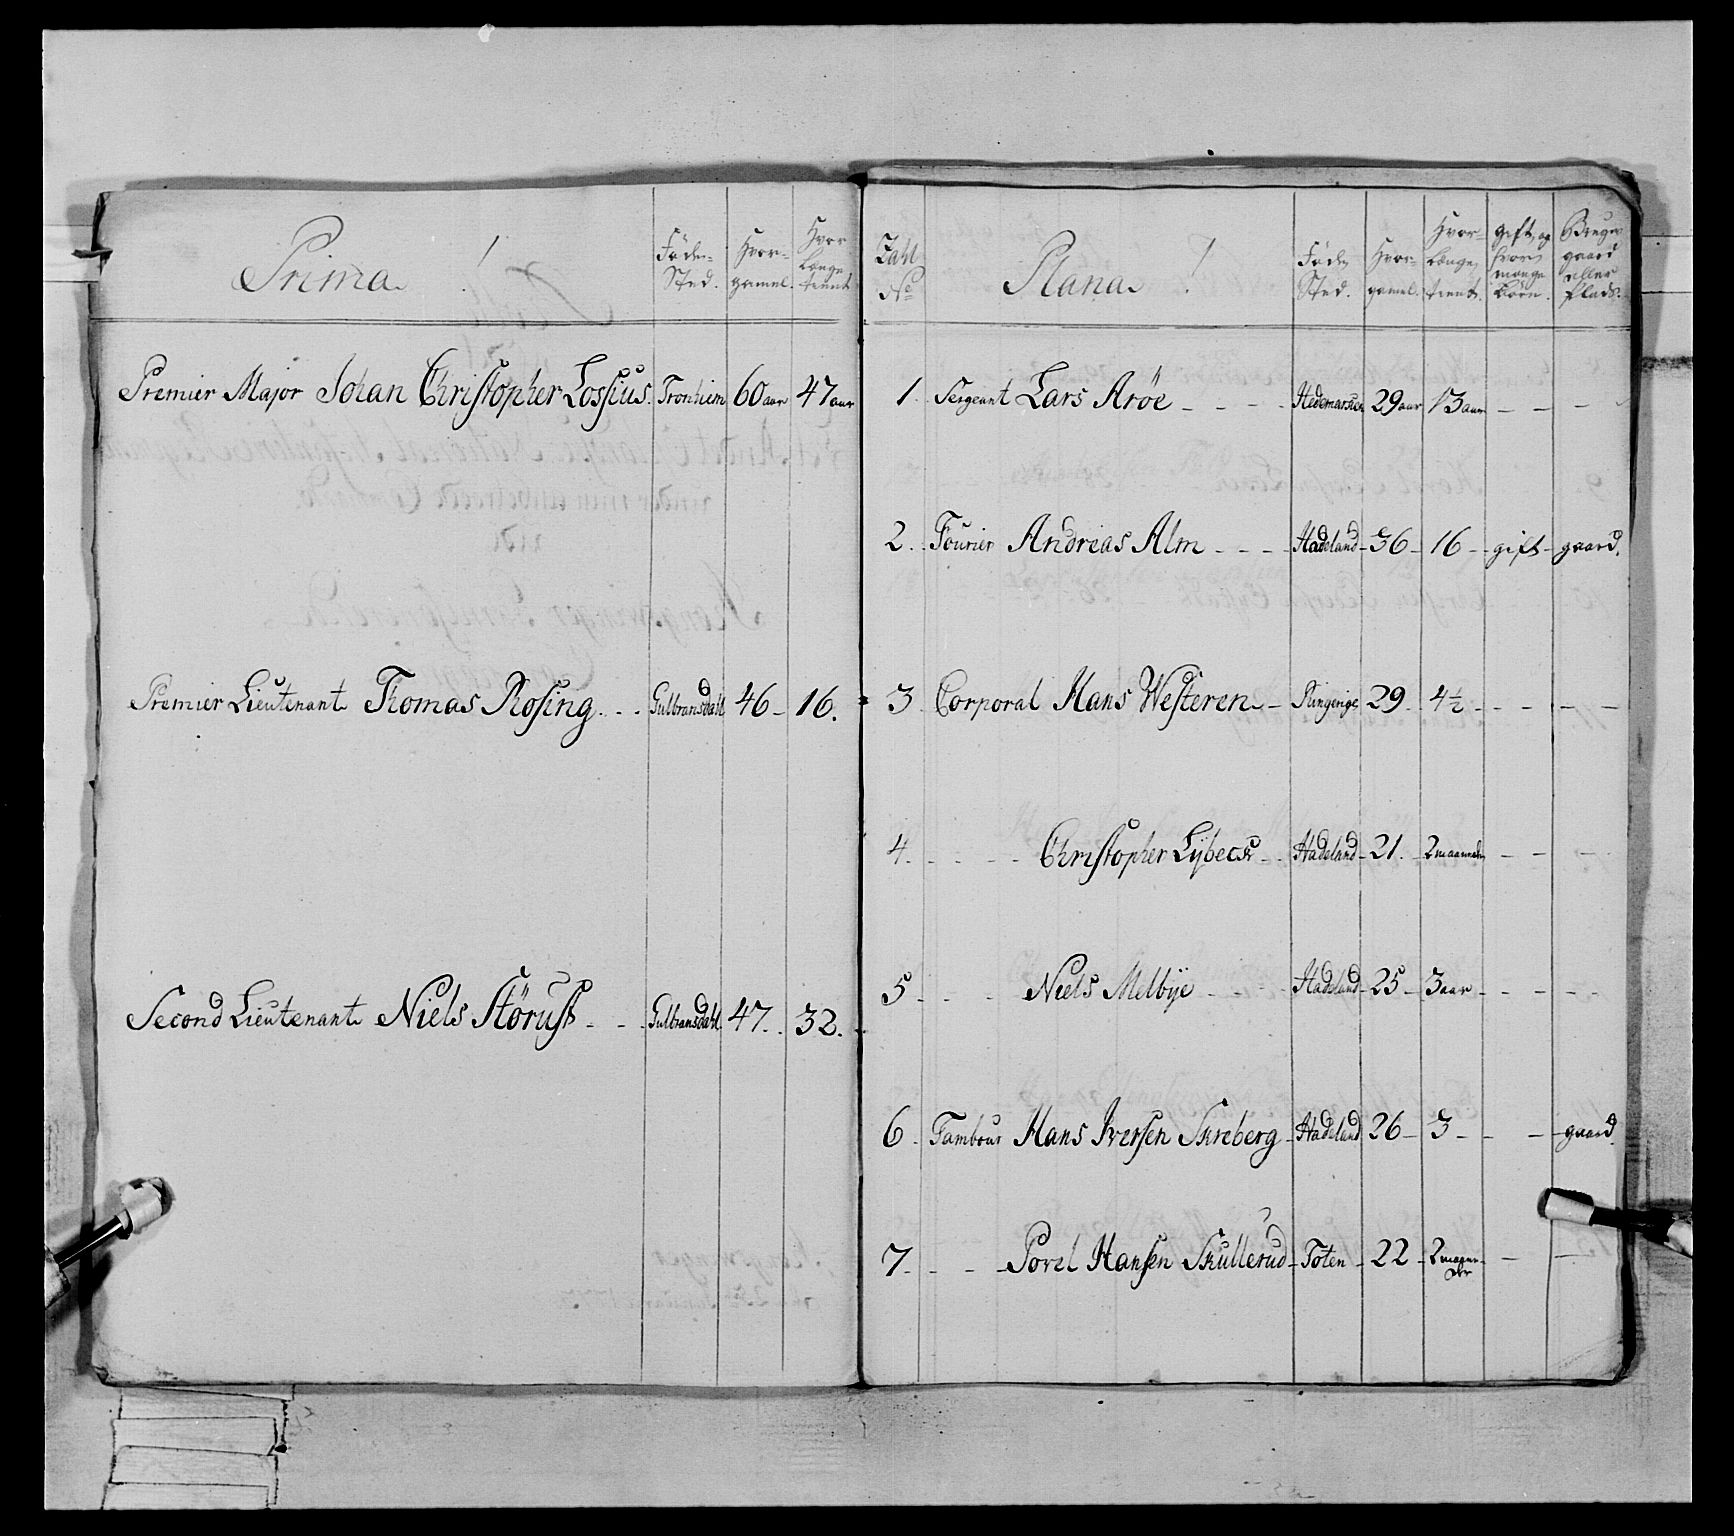 Prima !
Føde-
Sted.
Hvor-
gamel.
Hvor
Længe
tient
Premier Major Johan Christopher Lossius. Tronhiem 60 aar 47 aar
Premier Lieutenant Thomas Rosing. - - Gulbransdahl 46 - 16.
Second Lieutenant Niels Störust - - - Gulbransdahl 47. - 32.
Zahl
No
Plana !
Føde
Sted.
Hvor-
gamel.
Hvor-
Længe
tient.
gift, og
hvor
mange
børn.
Bruger
gaard
eller
Plads.
1. Sergeant Lars Aröe - - - - Hedemarken 29 aar 13 aar - - -
2. Fourier Andreas Alm - - - - Hadeland - 36 - 16 - gift - gaard.
3. Corporal Hans Westeren - - Ringerige 29 - 4½ - - - - -
4. - - - - Christopher Lÿbeck - - Hadeland - 21. - 2 maaneder - - -
5 - - - - Niels Melbÿe - - - Hadeland - 25 - 3 aar - - - - -
6. Tambour Hans Iversen Skreberg - Hadeland 26 - 3 - - - gaard.
7. - - - Povel Hansen Skullerud - Toten - 22 - 2 maane-
der - -